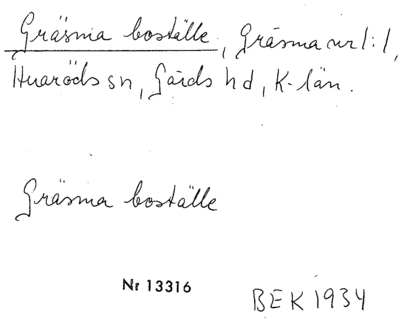 Gräsma boställe, Gräsma nr 1:1,
Huaröds sn, Gärds hd, K-län.
Gräsma boställe
Nr 13316
BEK 1934